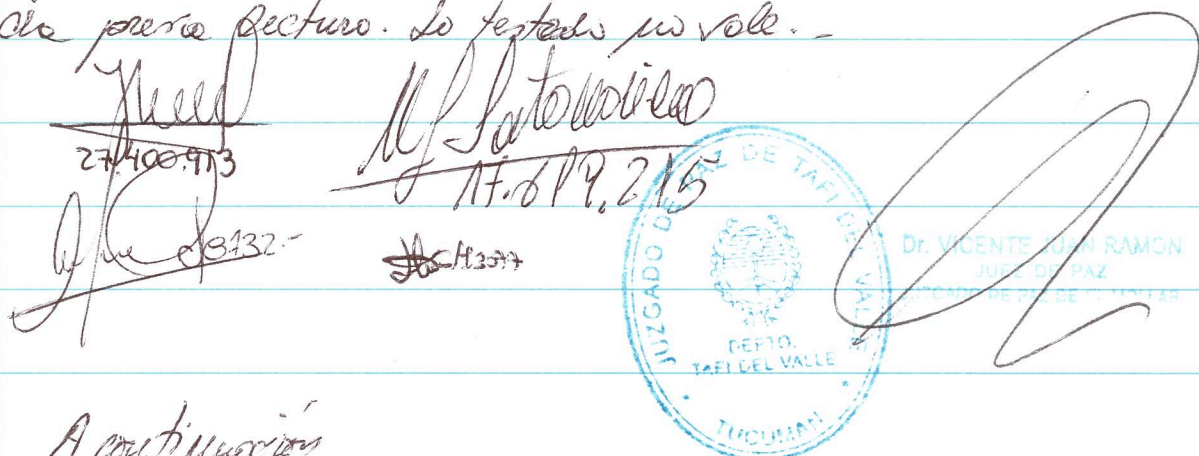 previa lectura. Lo testado no vale.-
27.400.913
17.619.215
JUZGADO DE PAZ DE TAFI DEL VALLE
DEPTO.
TAFI DEL VALLE
TUCUMAN
Dr. VICENTE JUAN RAMON
JUEZ DE PAZ
JUZGADO DE PAZ DE EL MOLLAR
A continuación